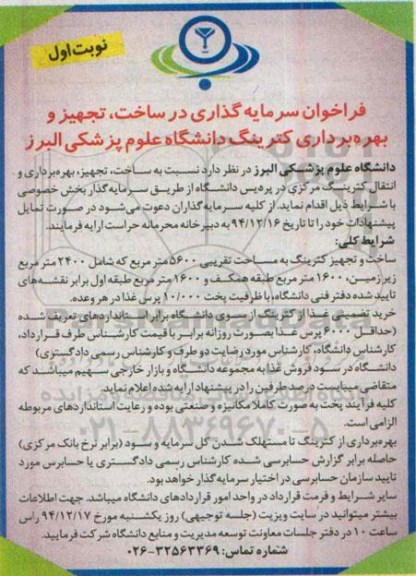 نوبت اول
فراخوان سرمایه گذاری در ساخت، تجهیز و
بهره برداری کترینگ دانشگاه علوم پزشکی البرز
دانشگاه علوم پزشکی البرز در نظر دارد نسبت به ساخت، تجهیز، بهره‌برداری و
انتقال کترینگ مرکزی در پردیس دانشگاه از طریق سرمایه‌گذار بخش خصوصی
با شرایط ذیل اقدام نماید. از کلیه سرمایه‌گذاران دعوت می‌شود در صورت تمایل
پیشنهادات خود را تا تاریخ ۹۴/۱۲/۱۶ به دبیرخانه محرمانه حراست ارایه فرمایند.
شرایط کلی:
ساخت و تجهیز کترینگ به مساحت تقریبی ۵۶۰۰ متر مربع که شامل ۲۴۰۰ متر مربع
زیرزمین، ۱۶۰۰ متر مربع طبقه همکف و ۱۶۰۰ متر مربع طبقه اول برابر نقشه‌های
تایید شده دفتر فنی دانشگاه، با ظرفیت پخت ۱۰/۰۰۰ پرس غذا در هر وعده.
خرید تضمینی غذا از کترینگ از سوی دانشگاه برابر استانداردهای تعریف شده
(حداقل ۶۰۰۰ پرس غذا بصورت روزانه برابر با قیمت کارشناس طرف قرارداد،
کارشناس دانشگاه، کارشناس مورد رضایت دو طرف و کارشناس رسمی دادگستری)
دانشگاه در سود فروش غذا به مجموعه دانشگاه و بازار خارجی سهیم میباشد که
متقاضی میبایست درصد طرفین را در پیشنهاد ارایه شده اعلام نماید.
کلیه فرآیند پخت به صورت کاملا مکانیزه و صنعتی بوده و رعایت استانداردهای مربوطه
الزامی است.
بهره‌برداری از کترینگ تا مستهلک شدن کل سرمایه و سود (برابر نرخ بانک مرکزی)
حاصله برابر گزارش حسابرسی شده کارشناس رسمی دادگستری یا حسابرس مورد
تایید سازمان حسابرسی در اختیار سرمایه‌گذار خواهد بود.
سایر شرایط و فرمت قرارداد در واحد امور قراردادهای دانشگاه میباشد. جهت اطلاعات
بیشتر میتوانید در سایت ویزیت (جلسه توجیهی) روز یکشنبه مورخ ۹۴/۱۲/۱۷ راس
ساعت ۱۰ در دفتر جلسات معاونت توسعه مدیریت و منابع دانشگاه شرکت فرمایید.
شماره تماس: ۳۲۵۶۳۳۶۹-۰۲۶
۰۲۱-۸۸۳۴۹۶۷۰-۵